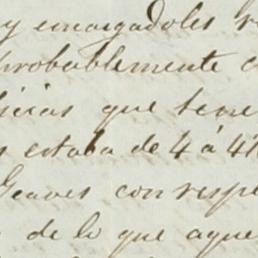 y encargadoles
probablemente
que tene
estaba de 4 á 4
Geaves con respe
de lo que aque